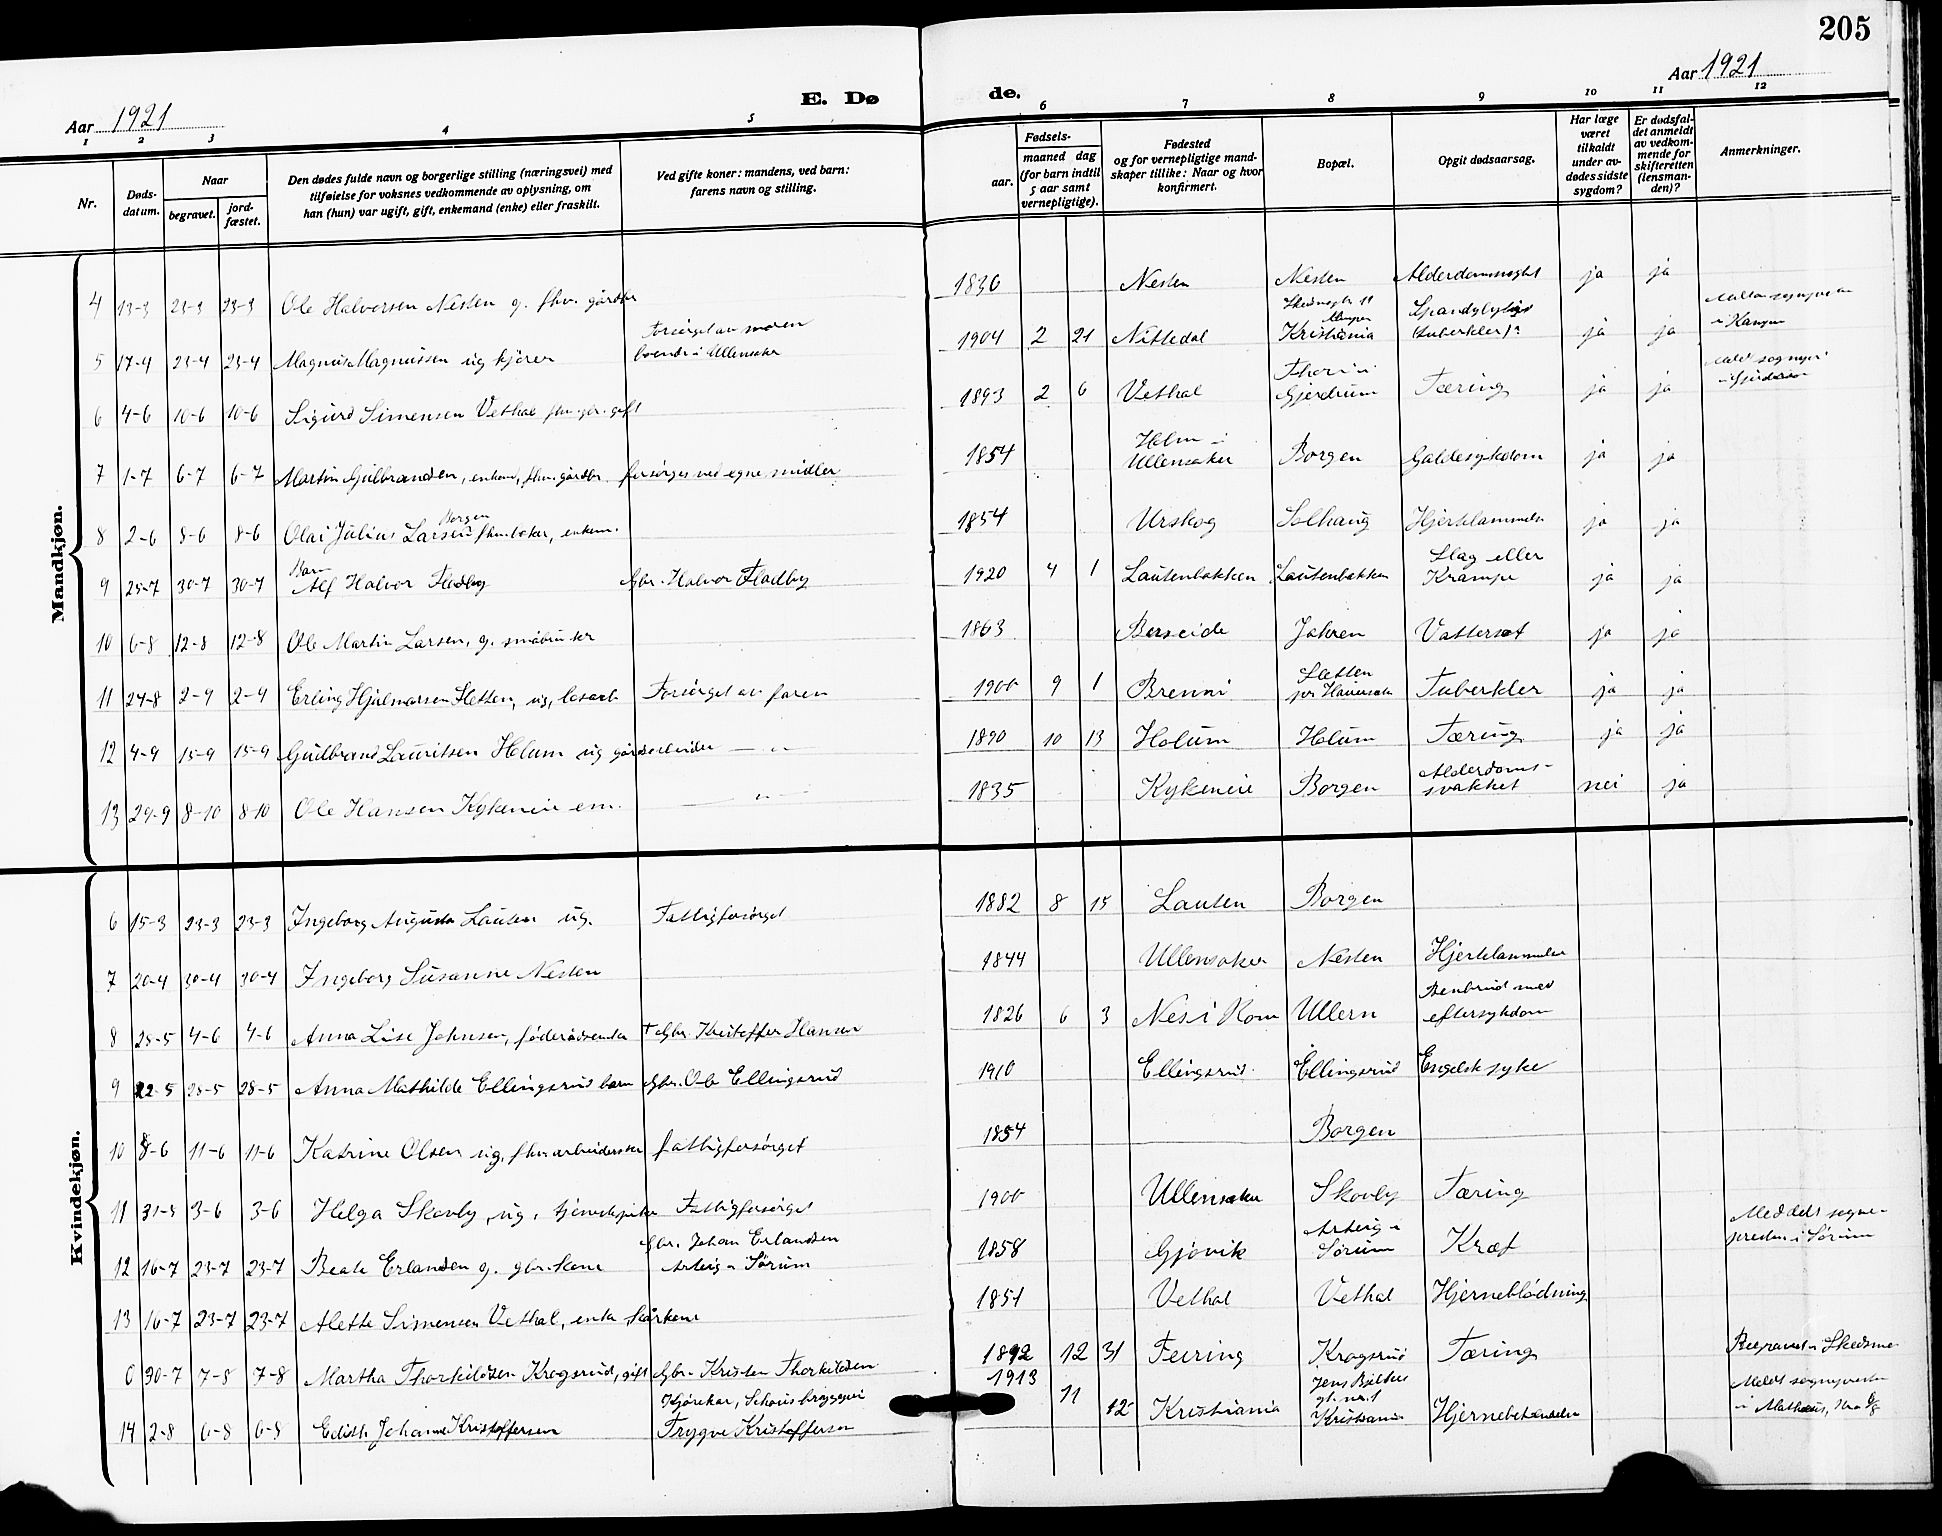 205
Aar 1921
E. Dø de.
Aar 1921
1 2 3 4 5 6 7 8 9 10 11 12
Nr.
Døds-
datum.
Naar
begravet.
jord-
fæstet.
Den dødes fulde navn og borgerlige stilling (næringsvei) med
tilføielse for voksnes vedkommende av oplysning, om
han (hun) var ugift, gift, enkemand (enke) eller fraskilt.
Ved gifte koner: mandens, ved barn:
farens navn og stilling.
Fødsels-
aar.
maaned dag
(for barn indtil
5 aar samt
vernepligtige).
Fødested
og for vernepligtige mand-
skaper tillike: Naar og hvor
konfirmert.
Bopæl.
Opgit dødsaarsag.
Har læge
været
tilkaldt
under av-
dødes sidste
sygdom?
Er dødsfal-
det anmeldt
av vedkom-
mende for
skifteretten
(lensman-
den)?
Anmerkninger.
Mandkjøn.
4 13-3 23-3 23-3 Ole Halvorsen Nesten g. fhv. gårdbr 1836 Nesten Nesten ja ja
5 17-4 23-4 23-4 Magnus Magnussen ug kjører Forsörget av moren boende i Ullensaker 1904 2 21 Nittedal Kristiania ja ja
6 4-6 10-6 10-6 Sigurd Simensen Vethal fhv. gbr. gift 1893 2 6 Vethal Gjerdrum Tæring ja ja
7 1-7 6-7 6-7 Martin Gulbrandsen, enkem, fhv. gårdbr. forsörges ved egne midler 1854 Holm i Ullensaker Borgen Galdesykdom ja ja
8 2-6 8-6 8-6 Olai Julius Larsen Borgen enkem. 1854 Urskog Solhaug Hjertelammelse ja ja
9 25-7 30-7 30-7 Barn Alf Halvor Fladby Gbr. Halvor Fladby 1920 4 1 Lautenbakken Lautenbakken Slag eller Krampe ja ja
10 6-8 12-8 12-8 Ole Martin Larsen, g. småbruker 1863 Berseide Jahren Vattersot ja ja
11 24-8 2-9 2-9 Erling Hjalmarsen Sletten, ug, løsarb Forsörget av faren 1900 9 1 Brenni Sletten Tuberkler ja ja
12 4-9 15-9 15-9 Gudbrand Lauritsen Holum ug gårdsarbeider — " — 1890 10 13 Holum Holum Tæring ja ja
13 29-9 8-10 8-10 Ole Hansen Kykeneie em. — " — 1835 Kykeneie Borgen Alderdoms- svakhet nei ja
Kvindekjøn.
6 15-3 23-3 23-3 Ingeborg Augusta Lauten ug. Fattigforsörget 1882 8 15 Lauten Borgen
7 20-4 30-4 30-4 Ingeborg Susanne Nesten 1844 Ullensaker Nesten Hjertelammelse
8 28-5 4-6 4-6 Anna Lise Johnsen, föderådsenke † Gbr. Kristoffer Hansen 1826 6 3 Nes i Rom Ullern Benbrud med eftersykdom
9 22-5 28-5 28-5 Anna Mathilde Ellingsrud barn Gbr. Ole Ellingsrud 1910 Ellingsrud Ellingsrud Engelsk syke
10 8-6 11-6 11-6 Katrine Olsen ug. fhv. arbeiderske fattigforsörget 1854 Borgen
11 31-5 3-6 3-6 Helga Skovly, ug, tjenestepike Fattigforsörget 1900 Ullensaker Skovly Tæring
12 16-7 23-7 23-7 Beate Erlandsen g. gbr. kone Gbr. Johan Erlandsen Asteig i Sörum 1858 Gjövik Asteig i Sörum Kræft Meddelt sogne- presten i Sörum
13 16-7 23-7 23-7 Alette Simensen Vethal, enke 1851 Vethal Vethal Hjerneblödning
0 30-7 7-8 7-8 Martha Thorkildsen Krogsrud, gift Gbr. Kristen Thorkildsen 1892 12 31 Feiring Krogsrud Tæring Begravet i Skedsmo
14 2-8 6-8 6-8 Edith Johanne Kristoffersen Kjörekar, Schous bryggeri Trygve Kristofferson 1913 11 12 Kristiania Jens Bjelkes gt. nr. 1 Kristiania Hjernebetændelse